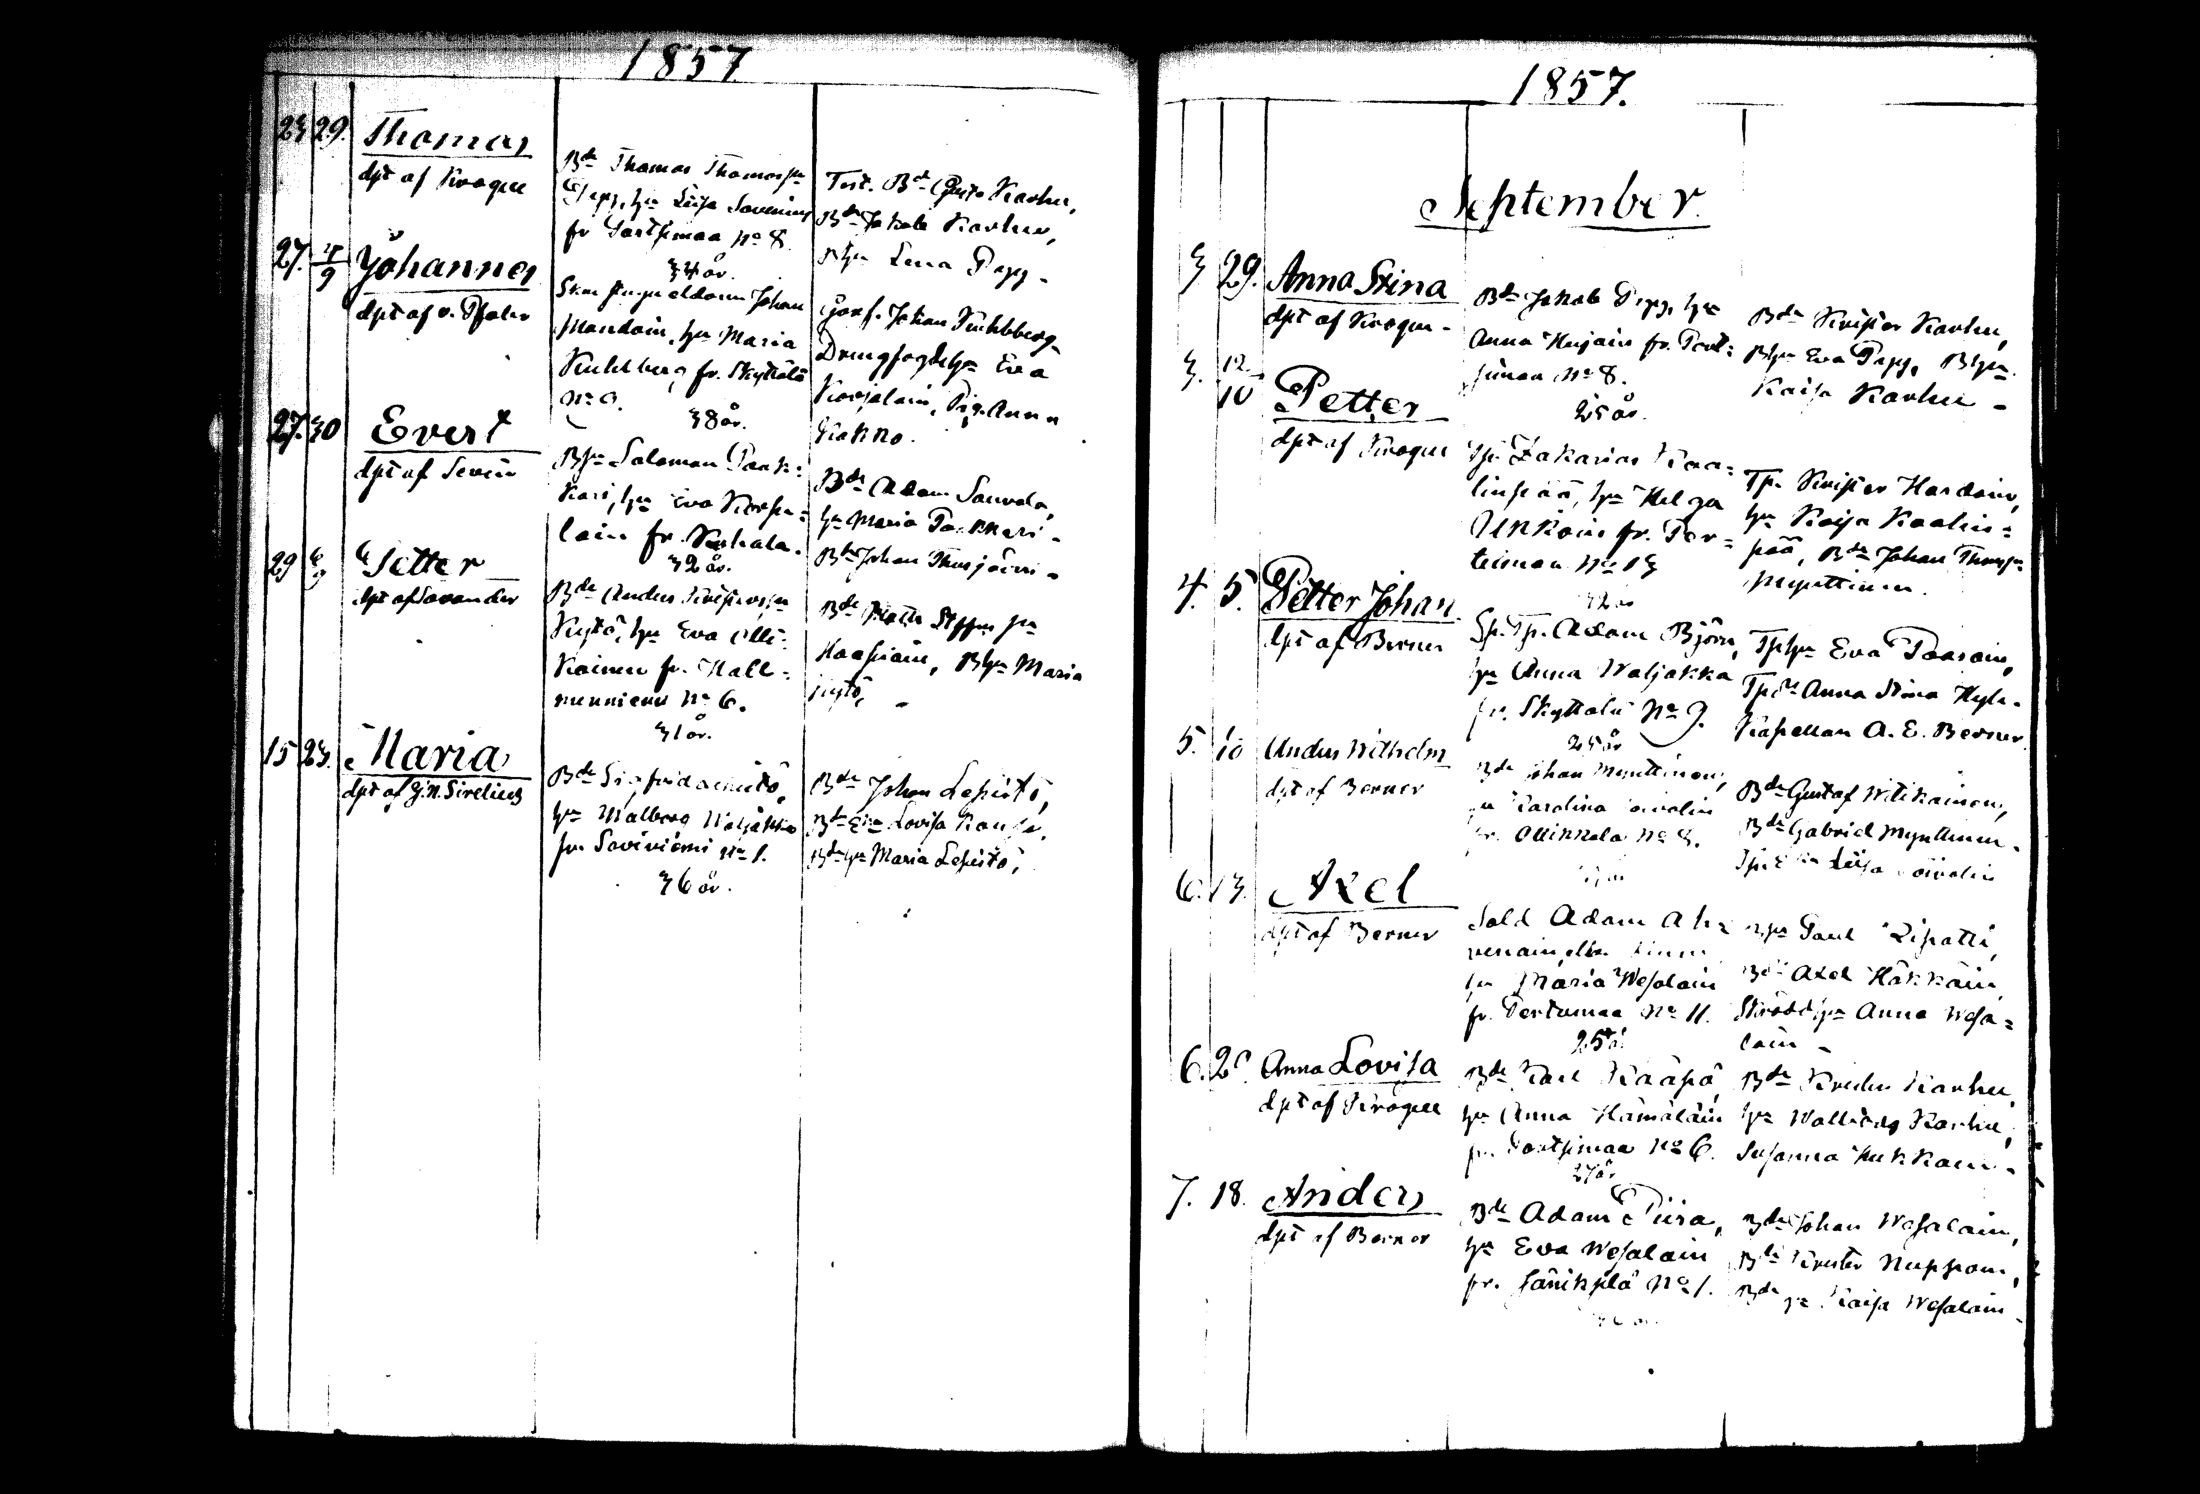 1857
23 29. Thomas
dpt af Krogell
Bd Thomas Thomasson
Pepp, hu Liisa Savenius
fr Pertsimaa No 8.
34 år.
Test. Bd Gusta Karhu,
Bd Jakob Karhu,
Bhu Lena Pepp -
27. 4/9 Johannes
dpt af v. Pfaler
Johan
Mandoin, hu Maria
Kuhlberg fr. Skyttälä
No 9.
38 år.
Johan Kuhlberg
Drengfogdehu Eva
Korjalain, Pig. Anna
Kakko.
27. 30 Evert
dpt af Sevin
Bsn Salomon Paak:
kari, hu Eva Korpe=
lain fr. Kuhala.
32 år.
Bd Adam Sauvala,
hu Maria Paakkari -
Bd Johan
29 6/9 Petter
dpt af Savander
Bd Anders
Kytö, hu Eva Olli=
kainen fr. Hall=
menniemi No 6.
31 år.
Bd Matts Steffens sn
Haapiain, Bhu Maria
Kytö, -
15 23. Maria
dpt af G. N. Sirelius
Bd Sigfrid
hu Malberg Waljakka
fr. Saviniemi No 1.
36 år.
Bd Johan Lepistö,
Bd Lovisa
Bd hu Maria Lepistö,
1857.
September.
3 29. Anna Stina
dpt af Krogell -
Bd Jakob Pepp, hu
Anna Kujain fr. Pert:
simaa No 8.
25 år.
Bd Krister Karhu,
Bhu Eva Pepp, Bhu
Kaisa Karhu -
3. 12/10 Petter
dpt af Krogell
Tp. Zakarias Kaa=
linpää, hu Helga
Ukkoin fr. Per=
teimaa No 13
32 år
Tp. Krister Hardoin,
hu Kaisa Kaalin=
pää, Bd Johan Thomassn
Mynttinen.
4. 5. Petter Johan.
dpt af Berner
Sp. Tp. Adam Björn,
hu Anna Waljakka
fr. Skyttälä No 9.
25 år
Tphu Eva Paasoin,
Tpdr Anna Stina Hyle.
Kapellan A. E. Berner.
5. 10 Anders Wilhelm
dpt af Berner
Bd Johan Mynttinen,
hu Karolina
fr. Ollikkala No 8.
Bd Gustaf Witikainen,
Bd Gabriel Mynttinen.
Liisa
6. 13. Axel
dpt af Berner
Sold Adam Ah=
venain,
hu Maria Wesalain
fr. Pertumaa No 11.
25 år
Paul Lipatti,
Bd Axel Häkkäin,
Anna Wesa=
lain -
6. Anna Lovisa
dpt af Krogell
Bd Karl Kääpä,
hu Anna Hämäläin
fr. Pertsimaa No 6.
27 år
Bd Krister Karhu,
hu Walborg Karhu,
Susanna Kukkain -
7. 18. Anders
dpt af Berner
Bd Adam Piira,
hu Eva Wesalain
fr. Jänikylä No 1.
Bd Johan Wesalain,
Bd Krister Nuppon,
Bd hu Kaisa Wesalain -